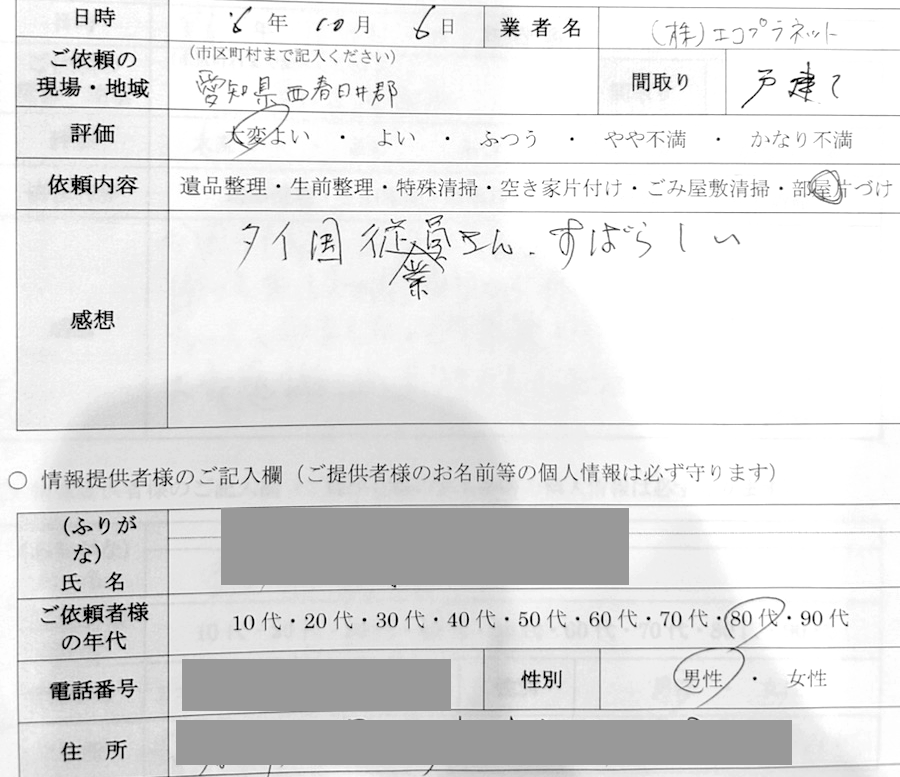 日時 6年 10月 6日 業者名 (株)エコプラネット
ご依頼の現場・地域 (市区町村まで記入ください) 愛知県西春日井郡 間取り 戸建て
評価 大変よい ・ よい ・ ふつう ・ やや不満 ・ かなり不満
依頼内容 遺品整理・生前整理・特殊清掃・空き家片付け・ごみ屋敷清掃・部屋片づけ
感想 タイ国従業員さん、すばらしい
○ 情報提供者様のご記入欄(ご提供者様のお名前等の個人情報は必ず守ります)
(ふりがな)
氏 名
ご依頼者様の年代 10代・20代・30代・40代・50代・60代・70代・80代・90代
電話番号 性別 男性 ・ 女性
住 所